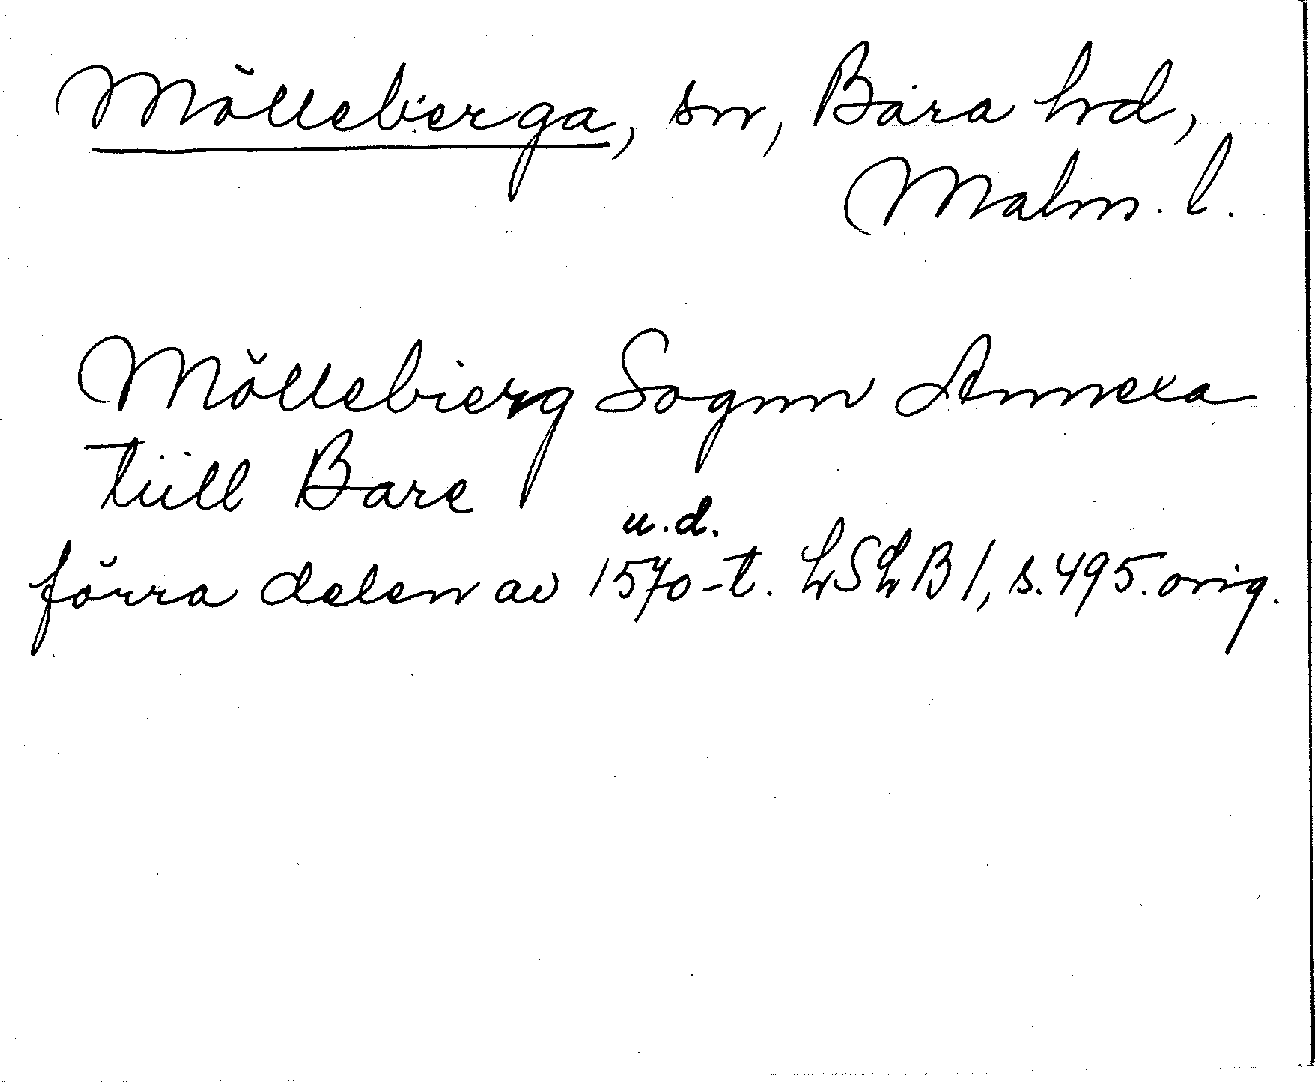 Mölleberga, sn, Bara hd,
Malm. l.
Möllebierg Sognn Annexa
tüll Bare
u.d.
förra delen av 1570-t. LSLB 1, s. 495. orig.